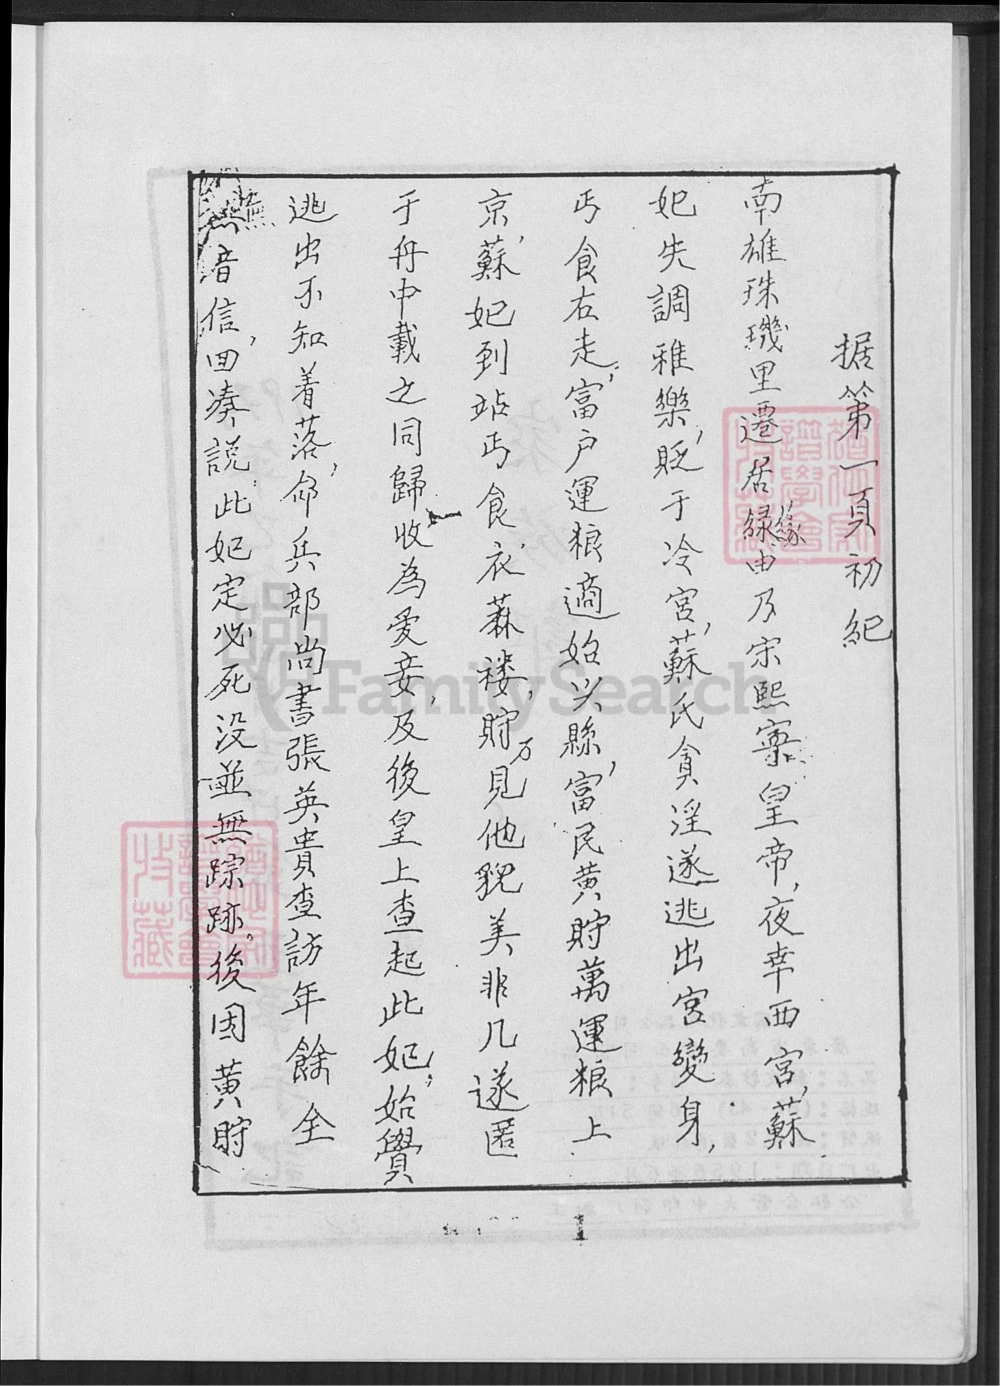 据第一頁初紀
南雄珠璣里遷居緣由乃宋熙寧皇帝,夜幸西宮,蘇
妃失調雅樂,貶于冷宮,蘇氏貪淫遂逃出宮變身,
丐食右走,富户運粮適始兴縣,富民黄貯萬運粮上
京,蘇妃到站丐食衣蔴褛,貯万見他貌美非凡遂匿
于舟中載之同歸收為爱妾,及後皇上查起此妃,始覺
逃出不知着落,命兵部尚書張英貴查訪年餘全
無音信,回凑説此妃定必死没並無踪跡。後因黄貯
1
FamilySearch